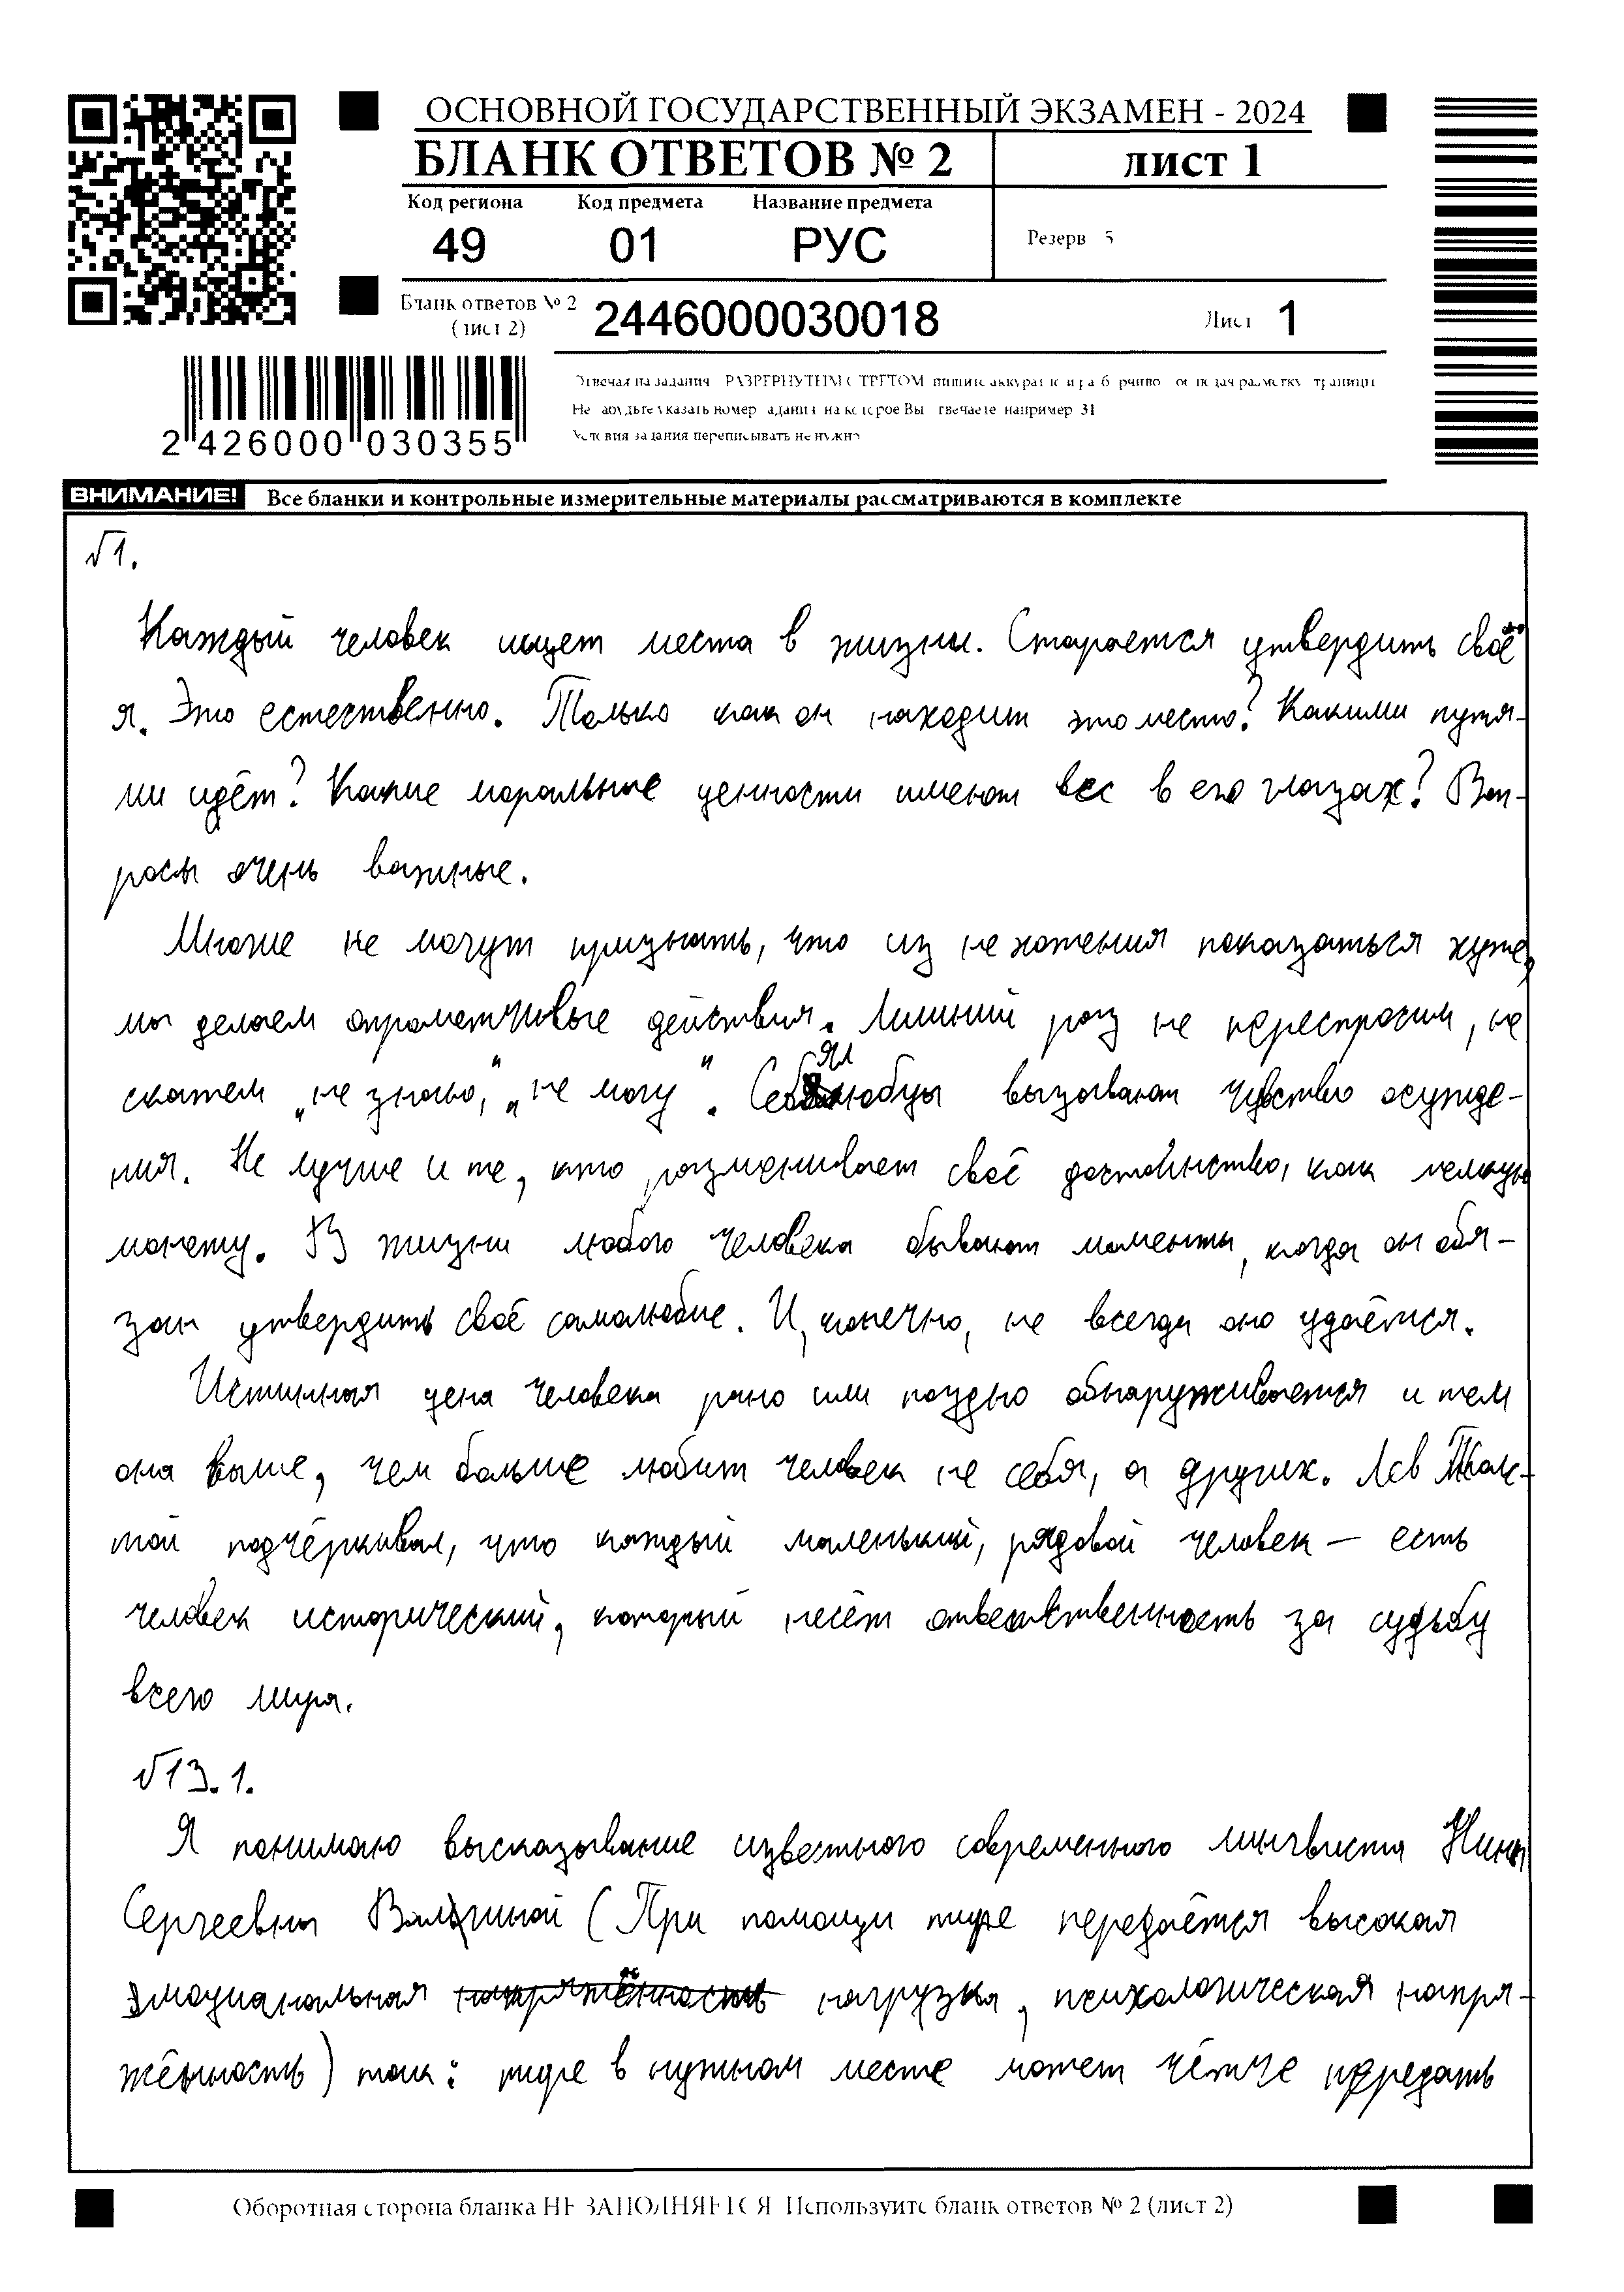 ОСНОВНОЙ ГОСУДАРСТВЕННЫЙ ЭКЗАМЕН - 2024
БЛАНК ОТВЕТОВ № 2
ЛИСТ 1
Код региона Код предмета Название предмета
49 01 РУС
Резерв 5
Бланк ответов № 2
(лист 2)
2446000030018
Лист 1
2 426000 030355
Отвечая на задания РАЗВЕРНУТЫМ ОТВЕТОМ пишите аккуратно и разборчиво соблюдая разметку страницы
Не забудьте указать номер задания на которое Вы отвечаете например 31
Условия задания переписывать не нужно
ВНИМАНИЕ! Все бланки и контрольные измерительные материалы рассматриваются в комплекте
√1.
Каждый человек ищет места в жизни. Старается утвердить своё
я. Это естественно. Только как он находит это место? Какими путя-
ми идёт? Какие моральные ценности имеют вес в его глазах? Воп-
росы очень важные.
Многие не могут признать, что из не хотения показаться хуже,
мы делаем опрометчивые действия. Лишний раз не переспросим, не
скажем „не знаю," „не могу". Себялюбцы вызывают чувство осужде-
ния. Не лучше и те, кто разменивает своё достоинство, как мелкую
монету. В жизни любого человека бывают моменты, когда он обя-
зан утвердить своё самолюбие. И, конечно, не всегда оно удаётся.
Истинная цена человека рано или поздно обнаруживается и тем
она выше, чем больше любит человек не себя, а других. Лев Толс-
той подчёркивал, что каждый маленький, рядовой человек — есть
человек исторический, который несёт ответственность за судьбу
всего мира.
√13.1.
Я понимаю высказывание известного современного лингвиста Нины
Сергеевны Валгиной (При помощи тире передаётся высокая
эмоциональная напряжённость нагрузка, психологическая напря-
жённость) так: тире в нужном месте может чётче передать
Оборотная сторона бланка НЕ ЗАПОЛНЯЕТСЯ Используйте бланк ответов № 2 (лист 2)